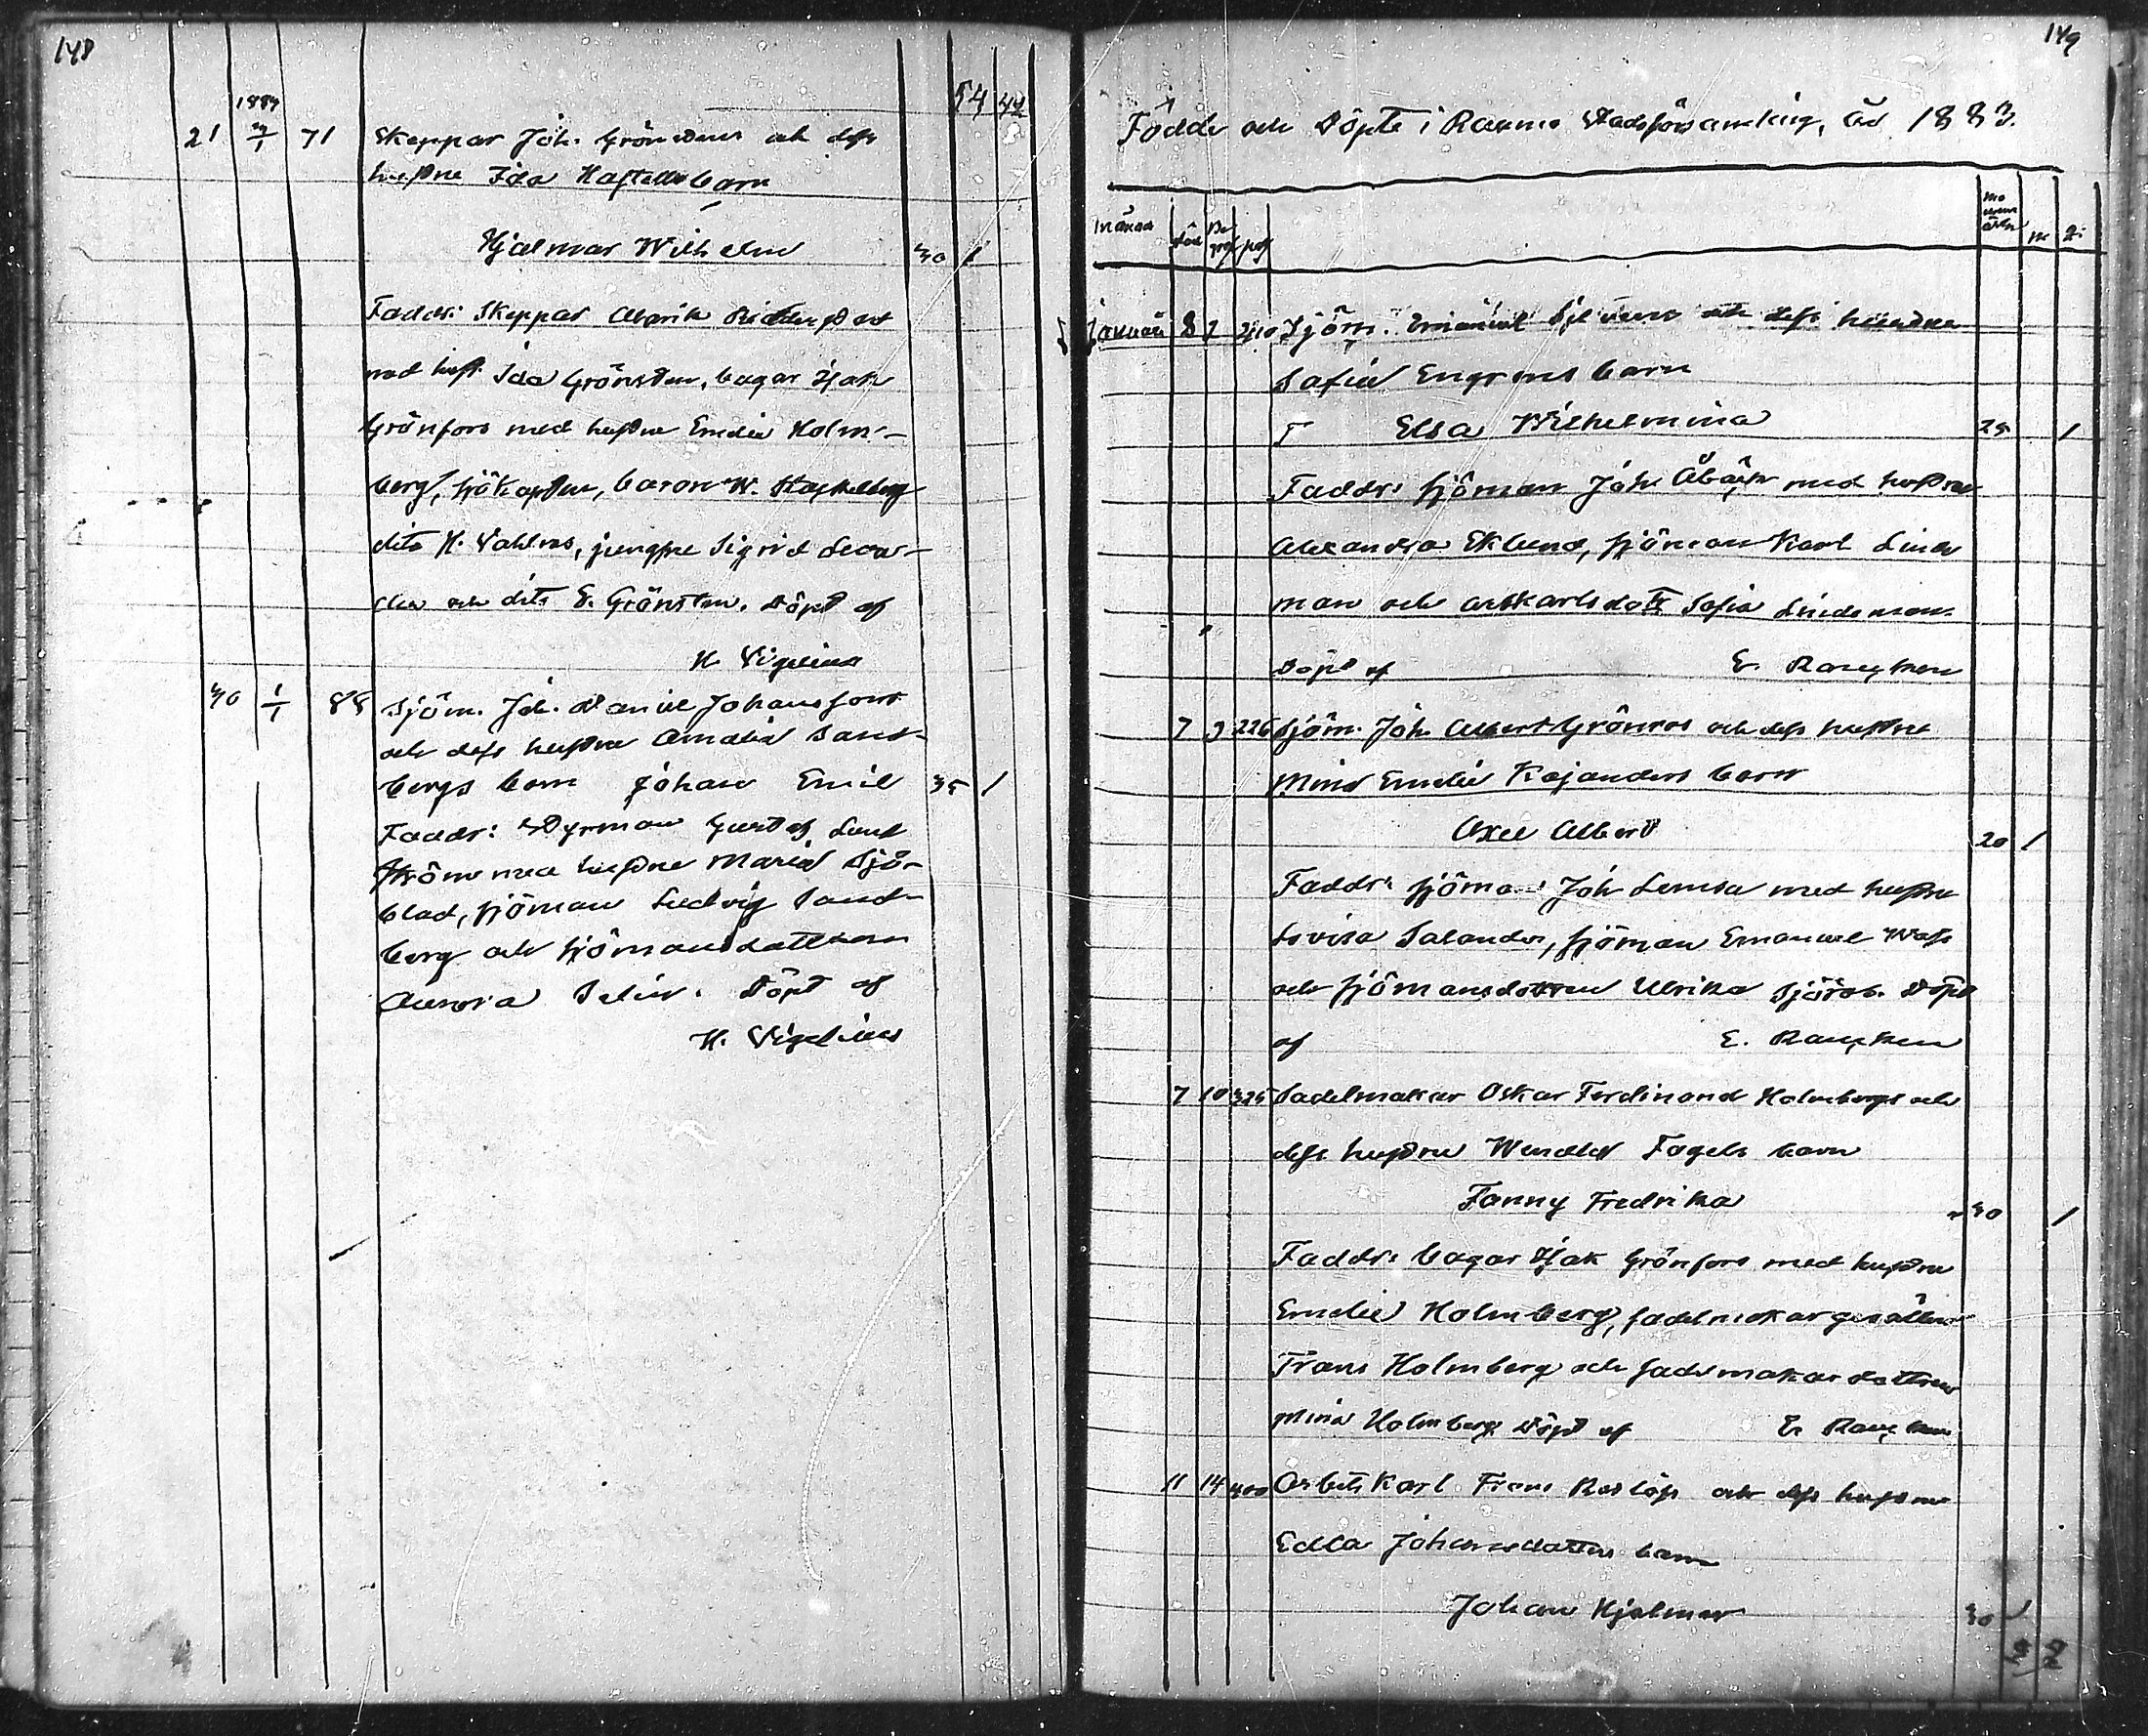 148
54 44
1884
21 71 Skeppar Joh. Grönstens och dess
hustrus Ida Hastells barn
Hjalmar Wilhelm 30 1
Faddr: Skeppar
med hust. Ida Grönsten, bagar Isak
Grönfors med hustru Emilia Holm-
berg, sjökapten, baron W. Stackelberg
dito H. Wahlroos, jungfru Sigrid
och dito E. Grönsten. Döpt af
H. Vigelius
30 1/1 88 Sjöm. Joh. Daniel Johanssons
och dess hustrus Amalia Sand-
bergs barn Johan Emil 35 1
Faddr: Styrman Gustaf Lind
ström med hustru Maria Sjö-
blad, sjöman Ludvig Sand-
berg och sjömansdottern
Aurora Selin. Döpt af
H. Vigelius
149
Födde och Döpte i Raumo Stadsförsamling, år 1883.
månad född m q
Januari 8 210 Sjöm. Emanuel och dess hustrus
Sofia Engrens barn
Elsa Wilhelmina 25 1
Faddr: sjöman Joh. med hustru
Alexandra Eklund, sjöman Karl Linde
man och arbkarlsdott Sofia Lindeman
Döpt af E.
7 9 226 Sjöm. Joh. Albert Grönroos och dess hustrus
Mina Emilia Kajanders barn
Axel Albert 20 1
Faddr: sjöman Joh Lemsa med hustru
Lovisa Salander, sjöman Emanuel Wass
och sjömansdottren Ulrika Sjöroos. Döpt
af E.
7 10 325 Sadelmakar Oskar Ferdinand Holmbergs och
dess hustrus Wendla Fagels barn
Fanny Fredrika 30 1
Faddr: bagar Isak Grönfors med hustru
Emelie Holmberg, sadelmakargesällen
Frans Holmberg och sadelmakardottren
Mina Holmberg. Döpt af E.
11 14 400 Arbets Karl Frans och dess hustrus
Edla Johansdotters barn
Johan Hjalmar 30 1
2 2